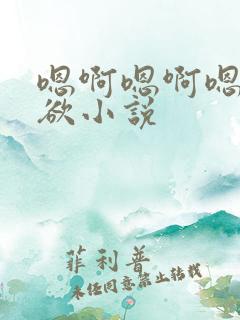 嗯啊嗯啊嗯
欲小说
菲利普
未经同意禁止转载